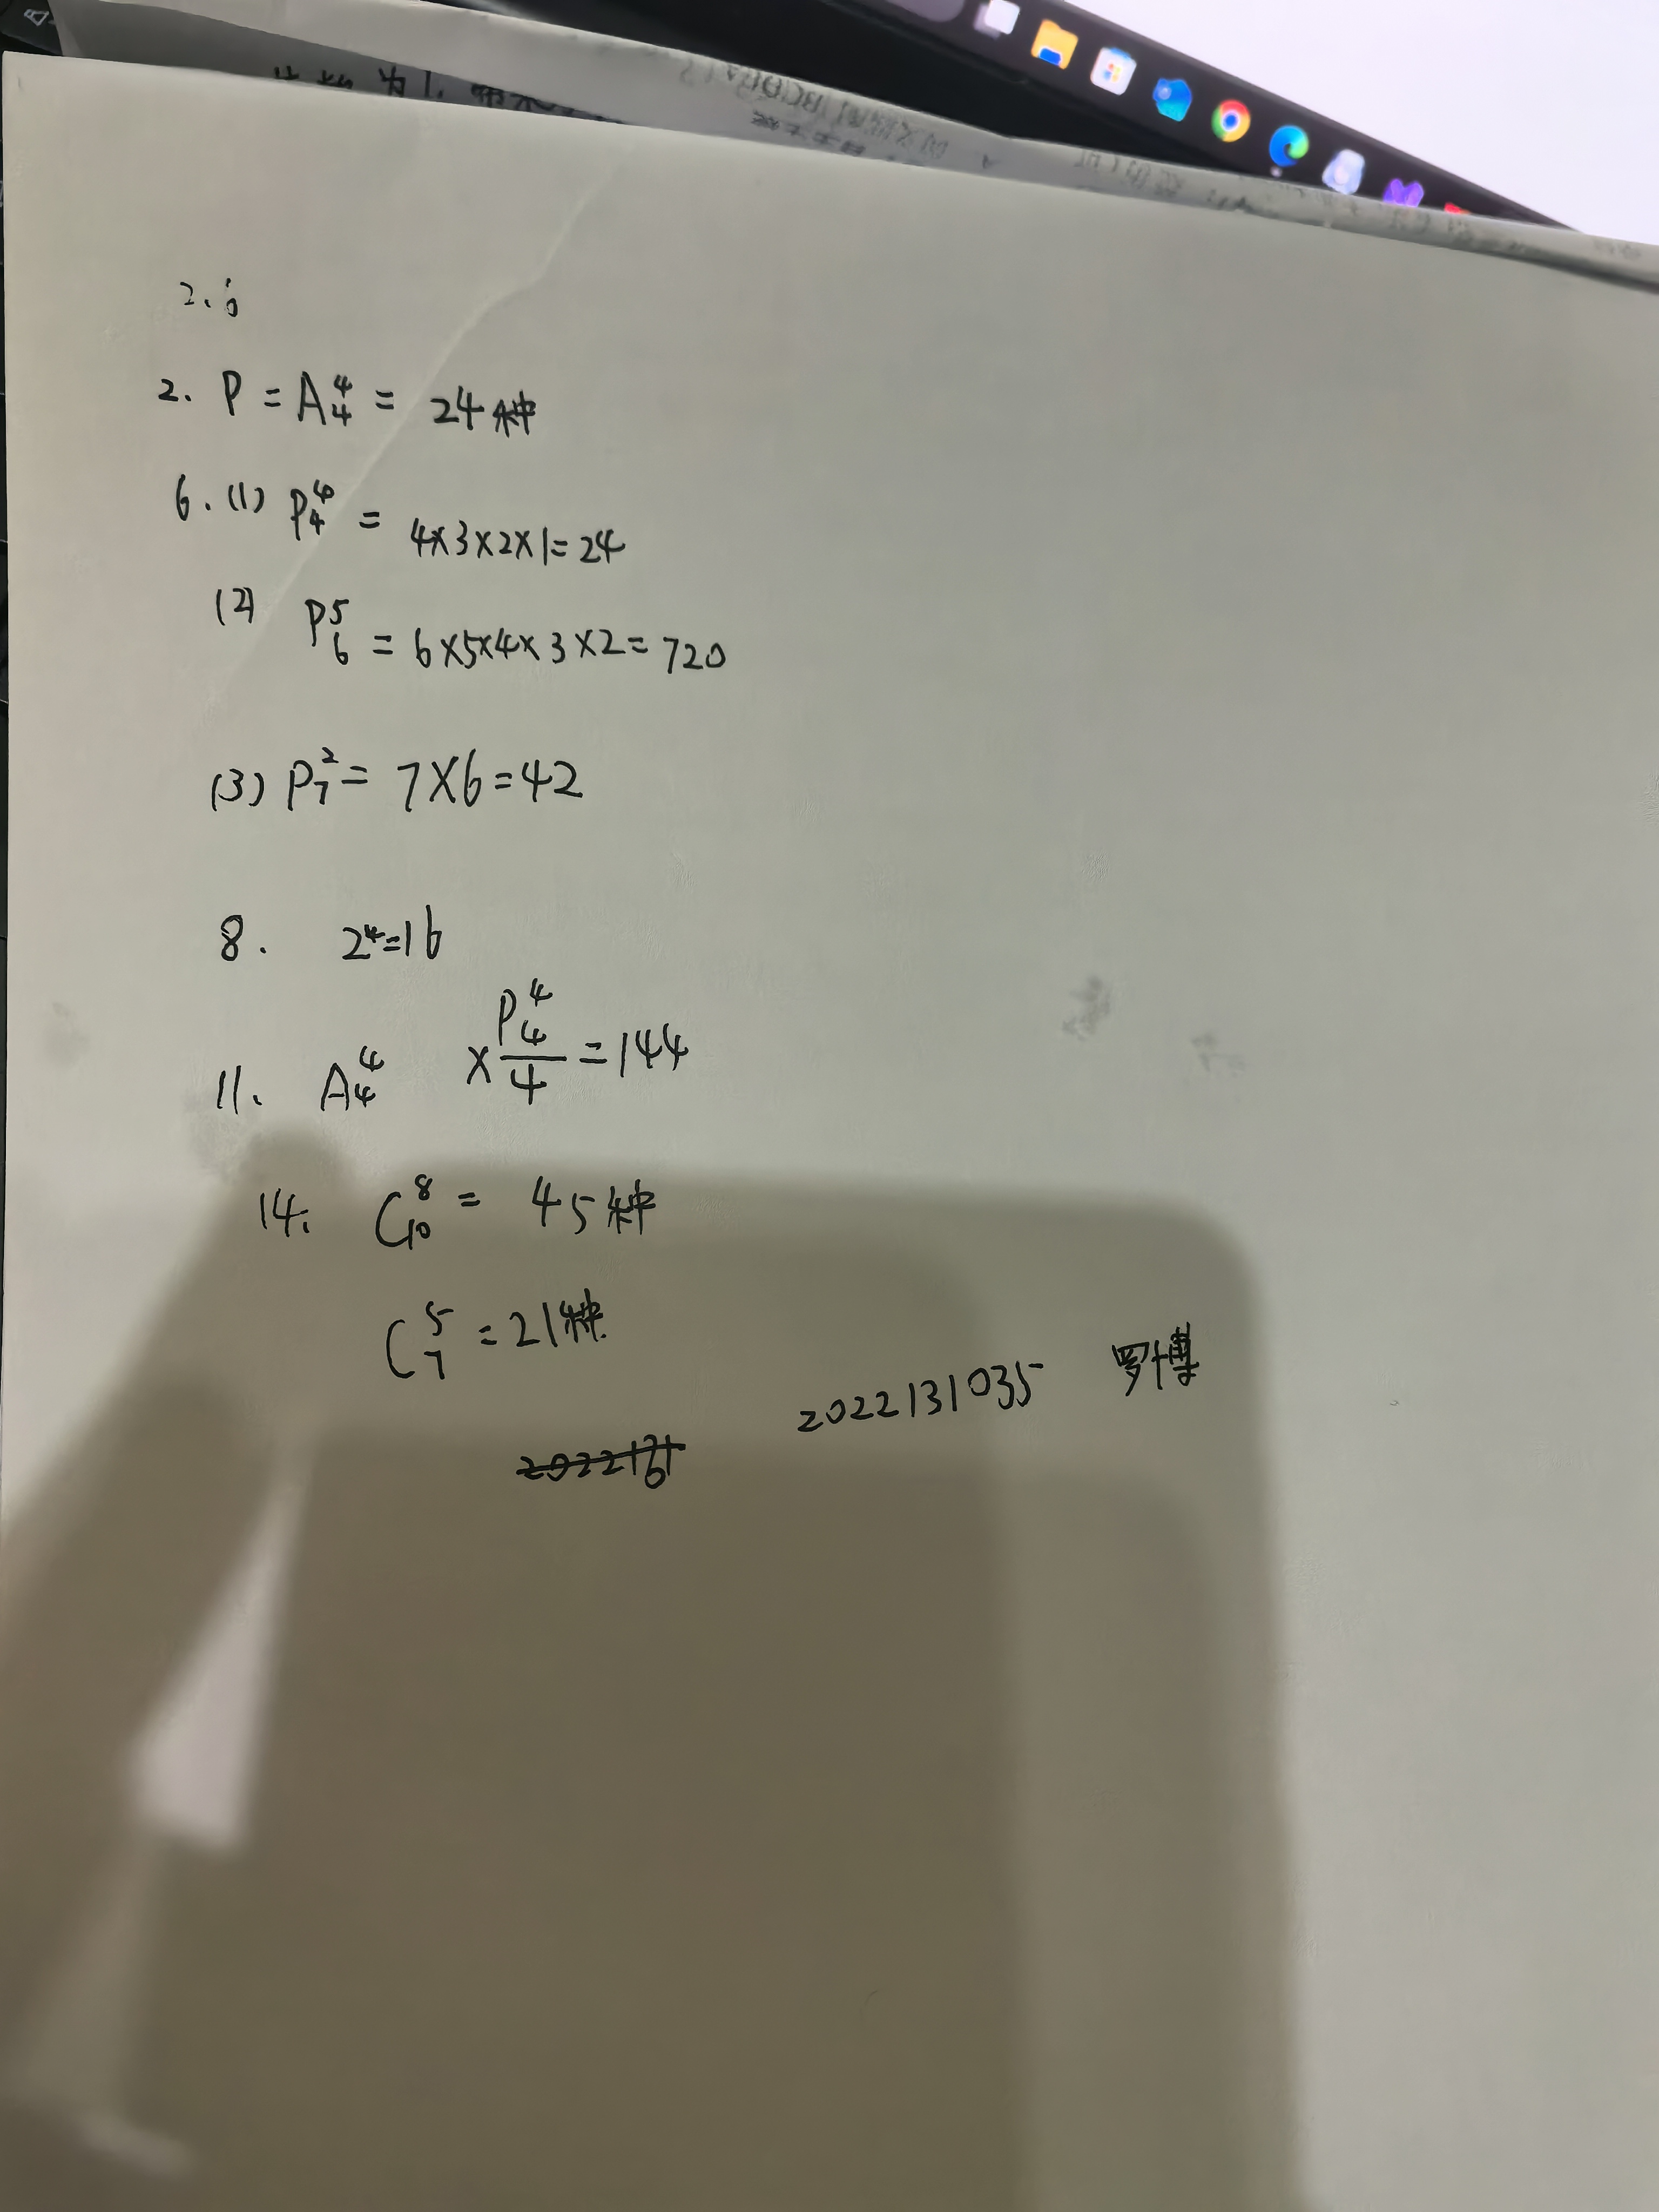 2.6
2. P = A₄⁴ = 24种
6. (1) P₄⁴ = 4×3×2×1=24
(2) P₆⁵ = 6×5×4×3×2=720
(3) P₇² = 7×6=42
8. 2⁴=16
11. A₄⁴ × P₄⁴/4 = 144
14. C₁₀⁸ = 45种
C₇⁵ = 21种
2022131035 罗博